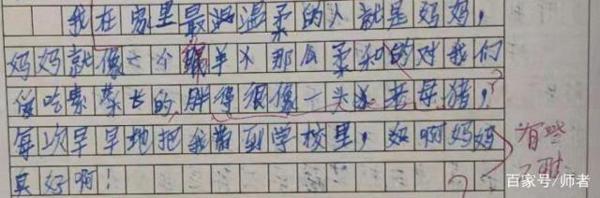 我在家里最温柔的人就是妈妈，
妈妈就像一个绵羊 那么柔和的对我们
爱吃素菜长的，胖得很像一头 老母猪，
每次早早地把我带到学校里，好啊妈妈
真好啊！
有些
百家号/师者